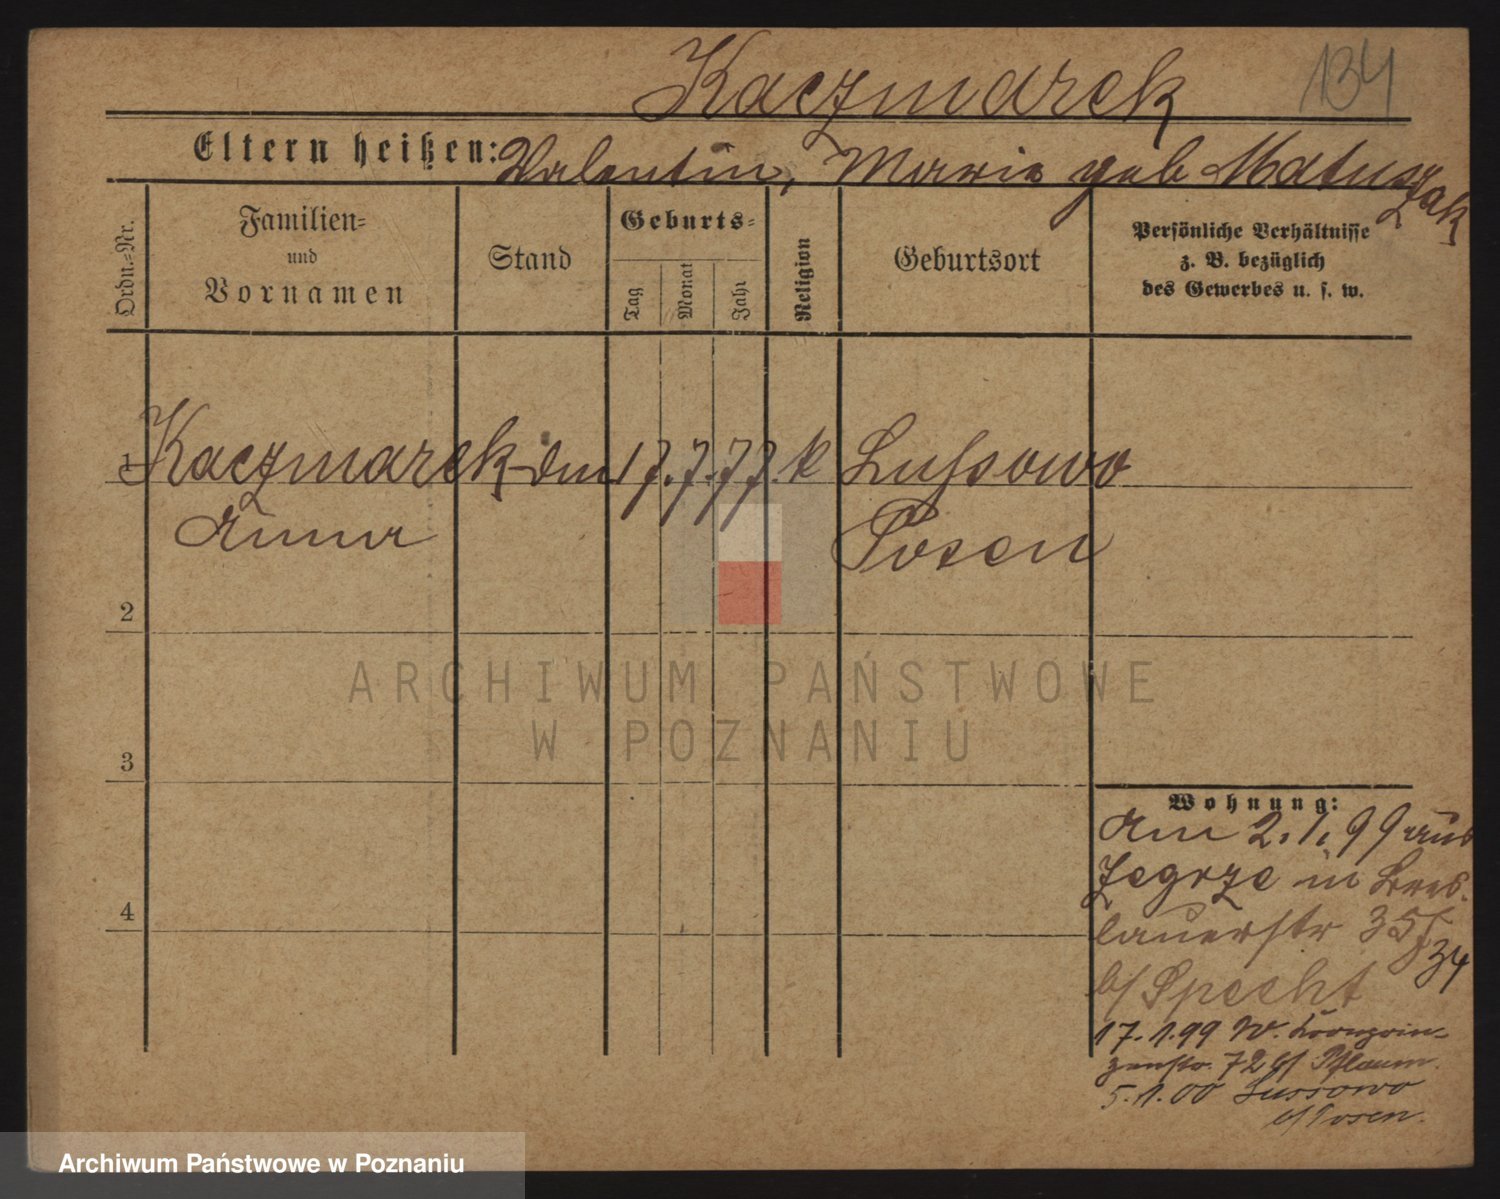 Kaczmarek 134
Eltern heißen: Valentin, Marie geb Matuszak
Ordn.-Nr.
Familien-
und
Vornamen
Stand
Geburts-
Tag
Monat
Jahr
Religion
Geburtsort
Persönliche Verhältnisse
z. B. bezüglich
des Gewerbes u. s. w.
1 Kaczmarek 17. 7. 77. k Lussowo
Anna Posen
2
3
4
Wohnung:
Am 2. 1. 99 aus
Zegrze in Bres-
lauerstr 35
34
b/ Specht
17. 1. 99 W. Kronprin-
zenstr. 72 b/ Pflaum.
5. 1. 00 Lussowo
b/ Posen.
ARCHIWUM PAŃSTWOWE
W POZNANIU
Archiwum Państwowe w Poznaniu